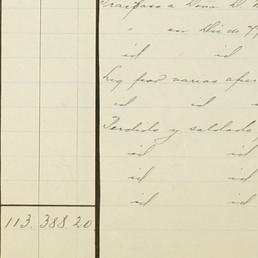 Traspaso a Dona D.
" en Dic de
id id
Liq por varias oper
id id id
Perdido y saldado,
id id
id id
id id
113.388.20